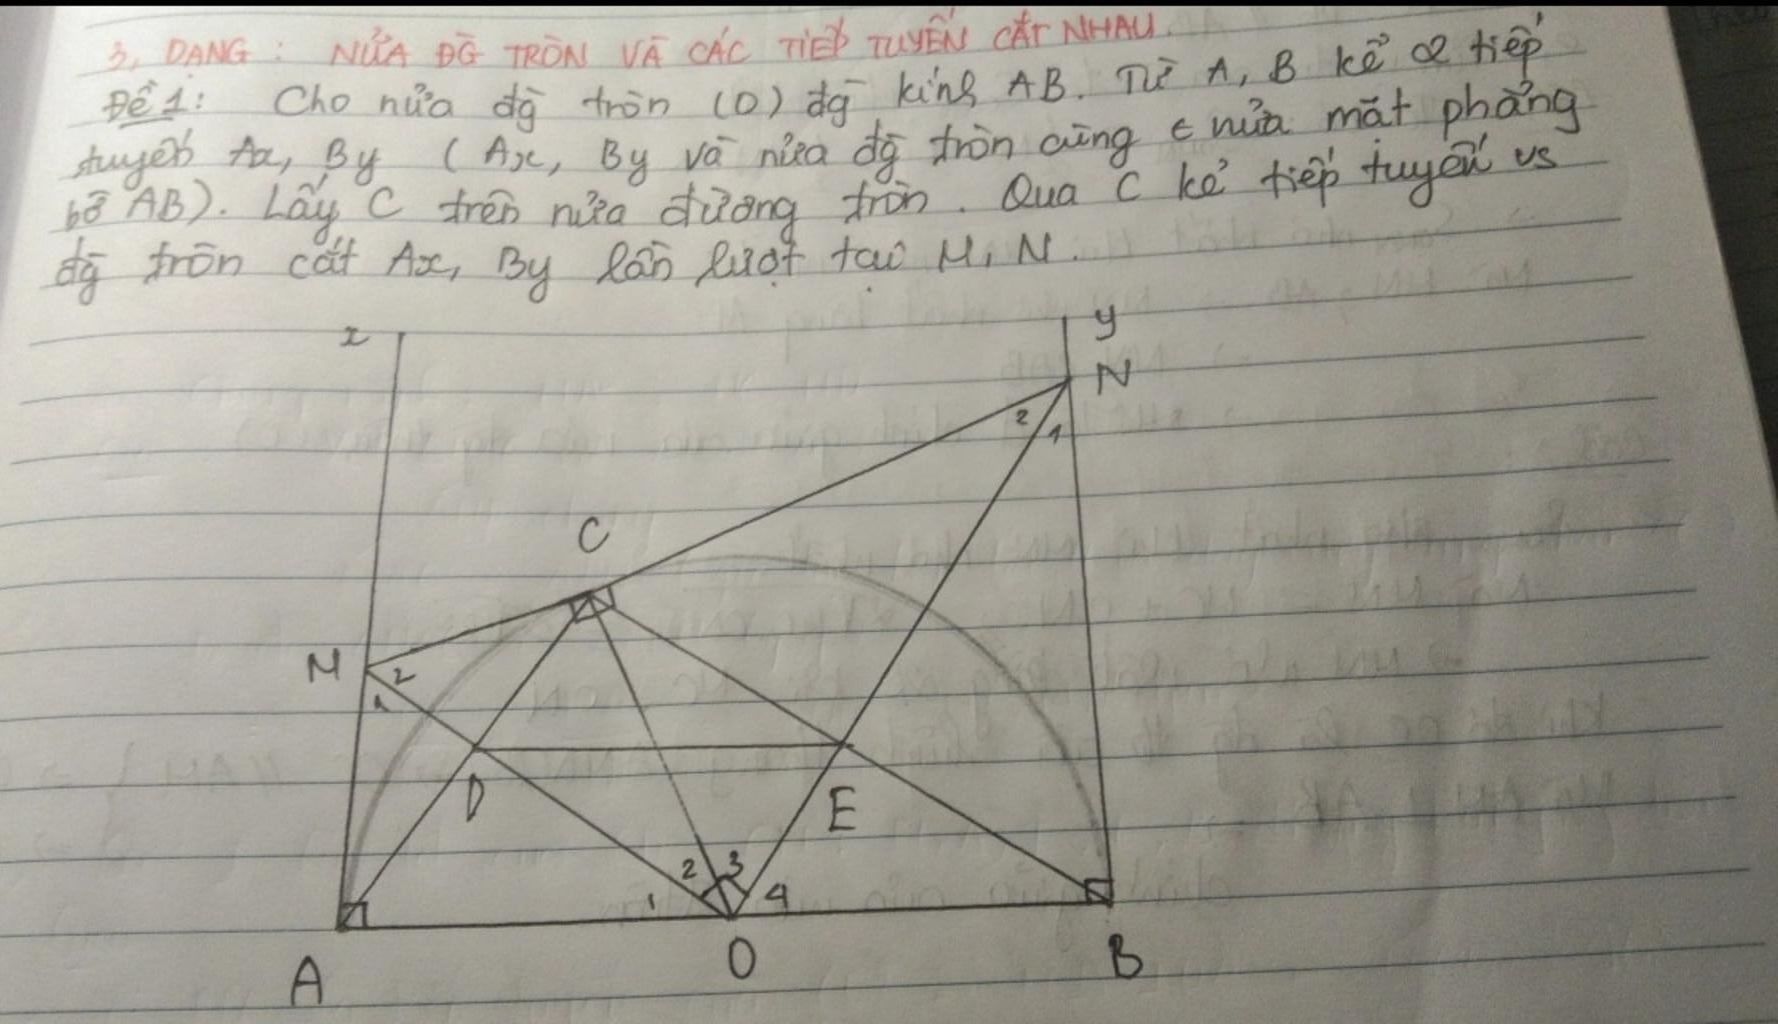 3, DẠNG : NỬA ĐG TRÒN VÀ CÁC TIẾP TUYẾN CẮT NHAU.
Đề 1: Cho nửa đg tròn (O) đg kính AB. Từ A, B kẻ 2 tiếp
tuyến Ax, By ( Ax, By và nửa đg tròn cùng ∈ nửa mặt phẳng
bờ AB). Lấy C trên nửa đường tròn. Qua C kẻ tiếp tuyến vs
đg tròn cắt Ax, By lần lượt tại M, N.
x y
N
2 1
C
M 2
1
D E
2 3
1 4
A O B